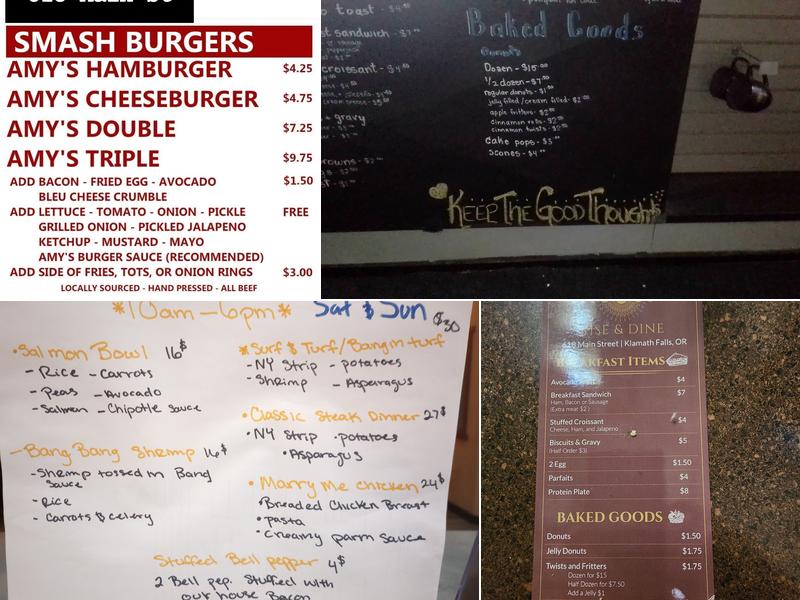 SMASH BURGERS
AMY'S HAMBURGER $4.25
AMY'S CHEESEBURGER $4.75
AMY'S DOUBLE $7.25
AMY'S TRIPLE $9.75
ADD BACON - FRIED EGG - AVOCADO $1.50
BLEU CHEESE CRUMBLE
ADD LETTUCE - TOMATO - ONION - PICKLE FREE
GRILLED ONION - PICKLED JALAPENO
KETCHUP - MUSTARD - MAYO
AMY'S BURGER SAUCE (RECOMMENDED)
ADD SIDE OF FRIES, TOTS, OR ONION RINGS $3.00
LOCALLY SOURCED - HAND PRESSED - ALL BEEF
toast
sandwich
croissant
gravy
Baked Goods
Donuts
Dozen - $15.00
1/2 dozen - $7.50
regular donuts - $1
jelly filled/cream filled - $2
apple fritters - $2
cinnamon rolls - $2
cinnamon twists - $2
Cake pops - $3
Scones - $4
KEEP THE GOOD THOUGHTS
*10am-6pm* Sat & Sun
•Salmon Bowl 16$
- Rice - Carrots
- Peas - Avocado
- Salmon - Chipotle Sauce
- Bang Bang Shrimp 16$
- Shrimp tossed in Bang
Sauce
- Rice
- Carrots & celery
$30
*Surf & Turf/Bang in turf
- NY Strip - potatoes
- Shrimp - Asparagus
• Classic Steak Dinner 27$
• NY Strip • potatoes
• Asparagus
• Marry Me chicken 24$
• Breaded Chicken Breast
• pasta
• creamy parm sauce
Stuffed Bell pepper 4$
2 Bell pep. Stuffed with
our house Bacon
RISE & DINE
618 Main Street | Klamath Falls, OR
BREAKFAST ITEMS
Avocado $4
Breakfast Sandwich $7
Ham, Bacon or Sausage
(Extra meat $2)
Stuffed Croissant $4
Cheese, Ham, and Jalapeno
Biscuits & Gravy $5
(Half Order $3)
2 Egg $1.50
Parfaits $4
Protein Plate $8
BAKED GOODS
Donuts $1.50
Jelly Donuts $1.75
Twists and Fritters $1.75
Dozen for $15
Half Dozen for $7.50
Add a Jelly $1